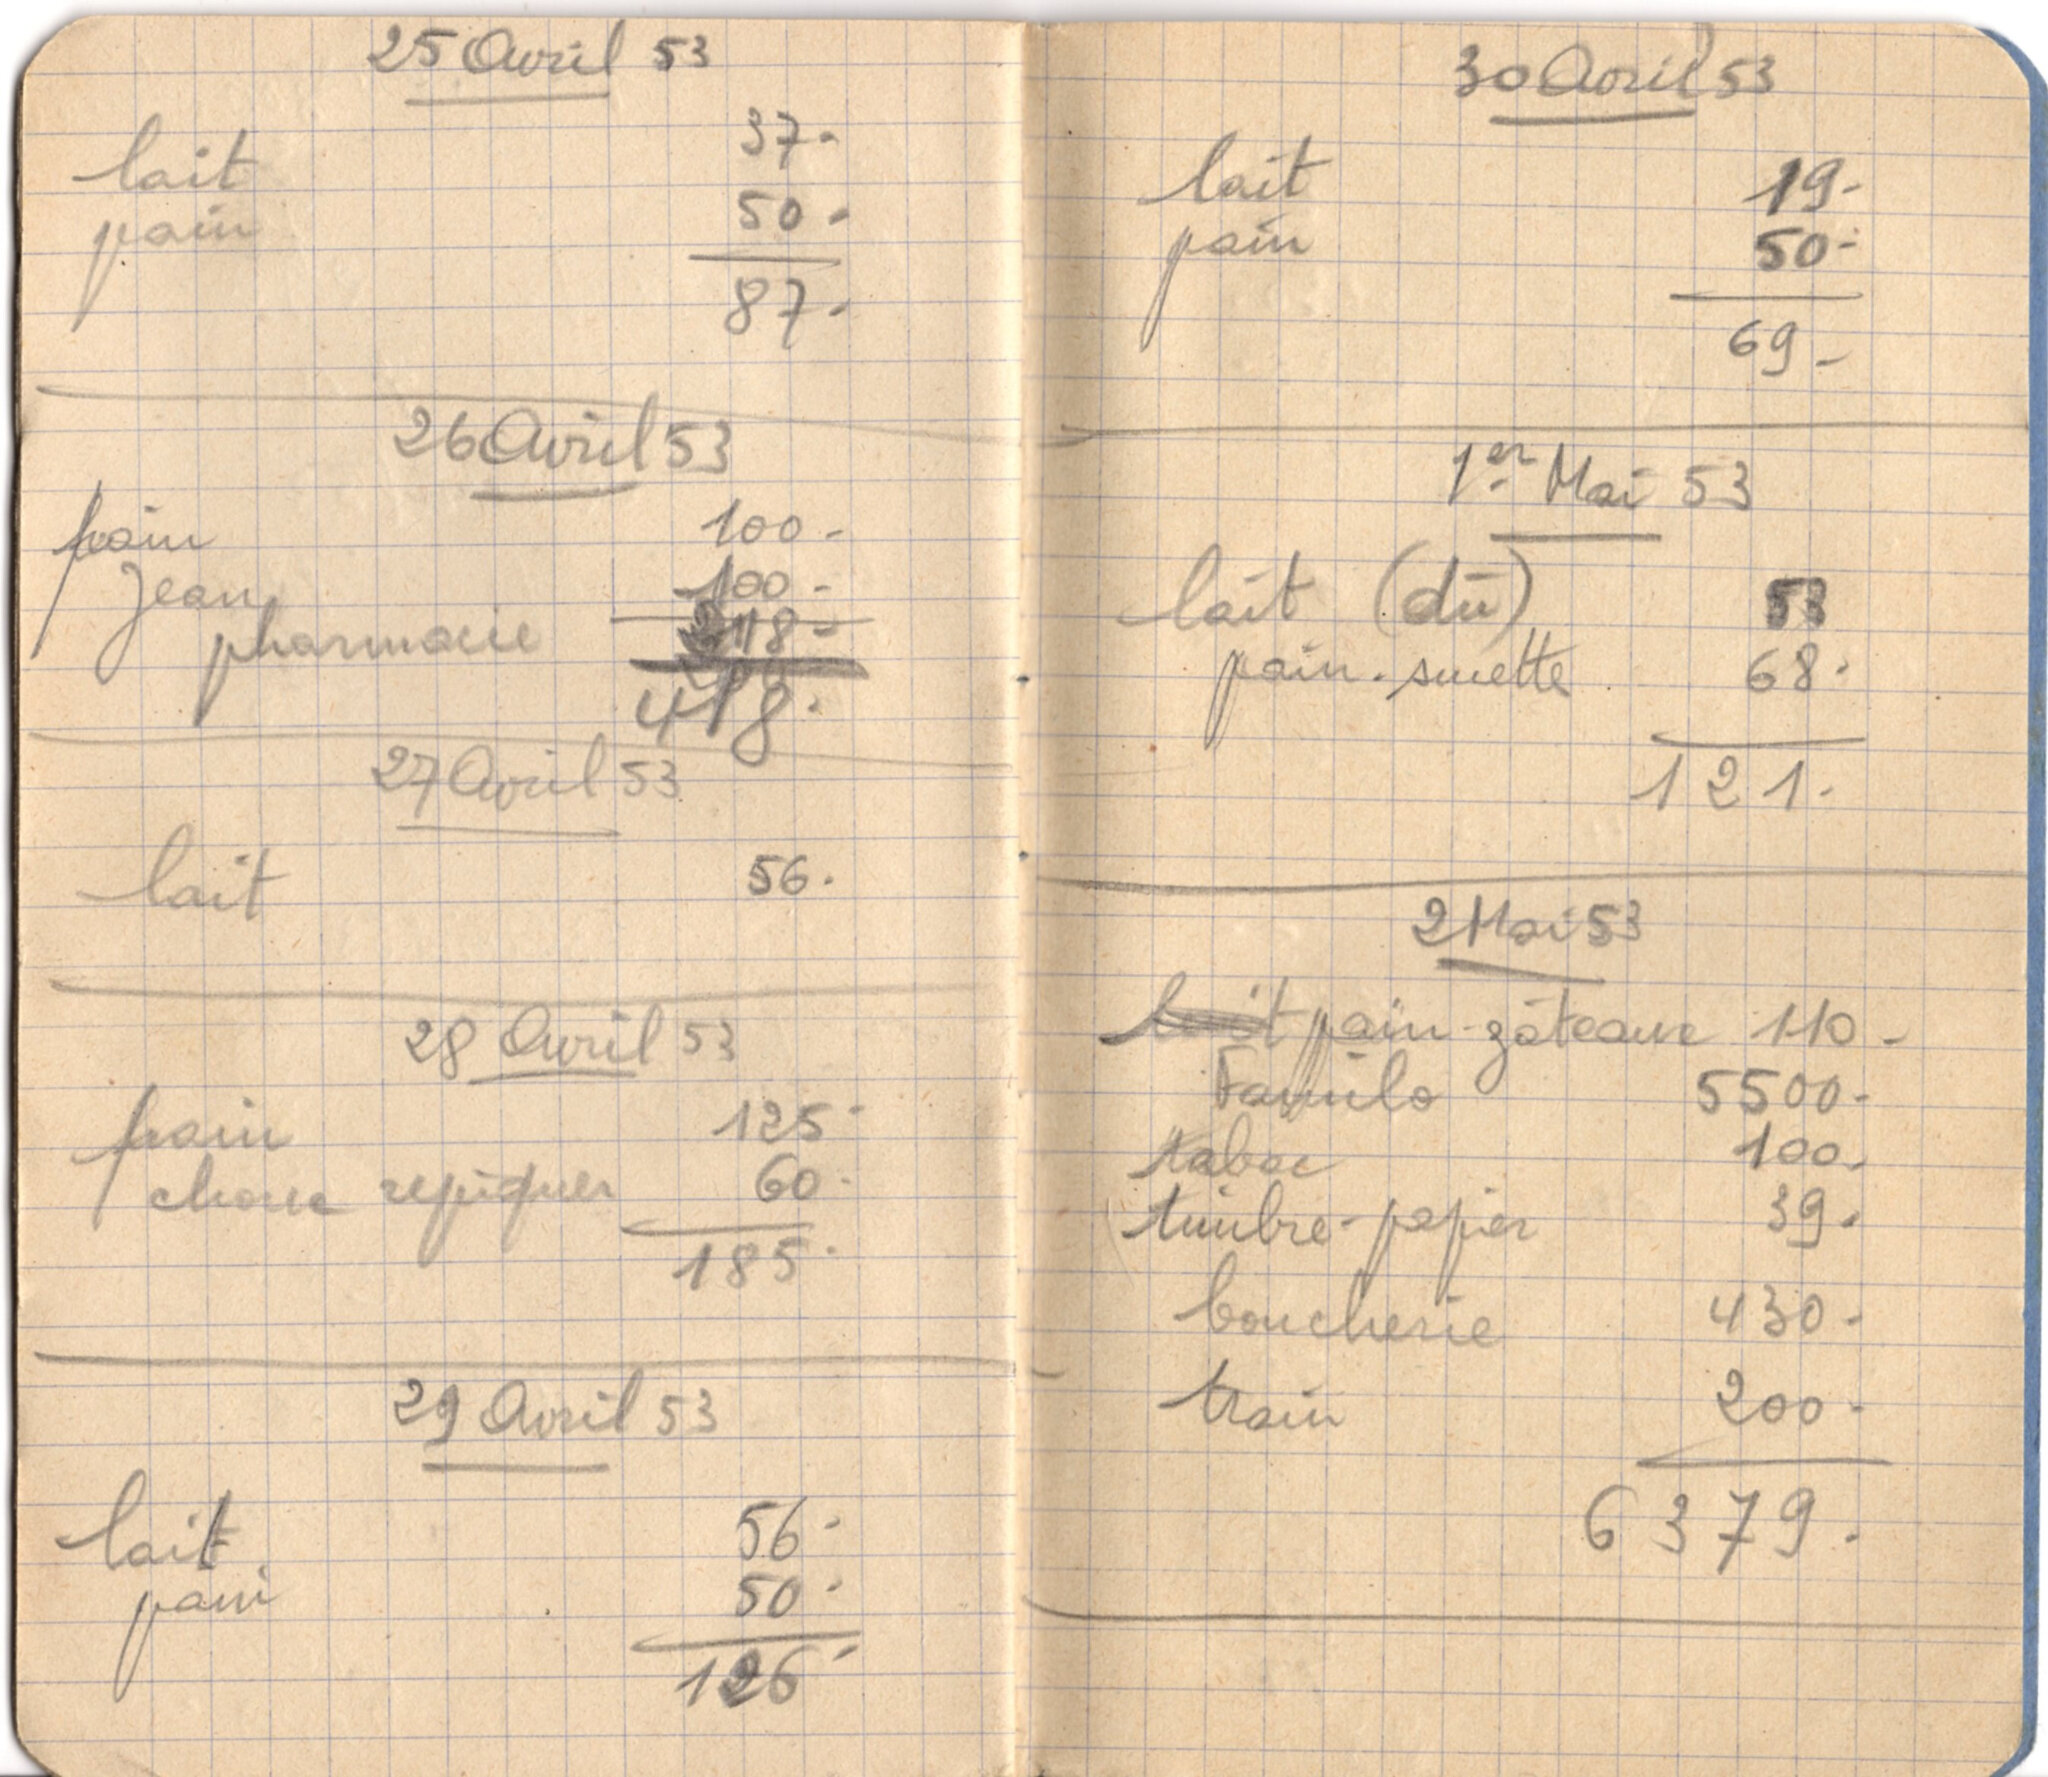 25 Avril 53
lait 37.-
pain 50.-
87.-
26 Avril 53
pain 100.-
Jean 100.-
pharmacie 118.-
418.
27 Avril 53
lait 56.
28 Avril 53
pain 125-
choux repiquer 60-
185.
29 Avril 53
lait 56-
pain 50-
126-
30 Avril 53
lait 19.-
pain 50-
69.-
1er Mai 53
lait (dû) 53
pain. sucette 68.
121.
2 Mai 53
lait pain-gâteaux 110.-
Familo 5500-
tabac 100.
timbre-papier 39.
boucherie 430-
train 200-
6379.